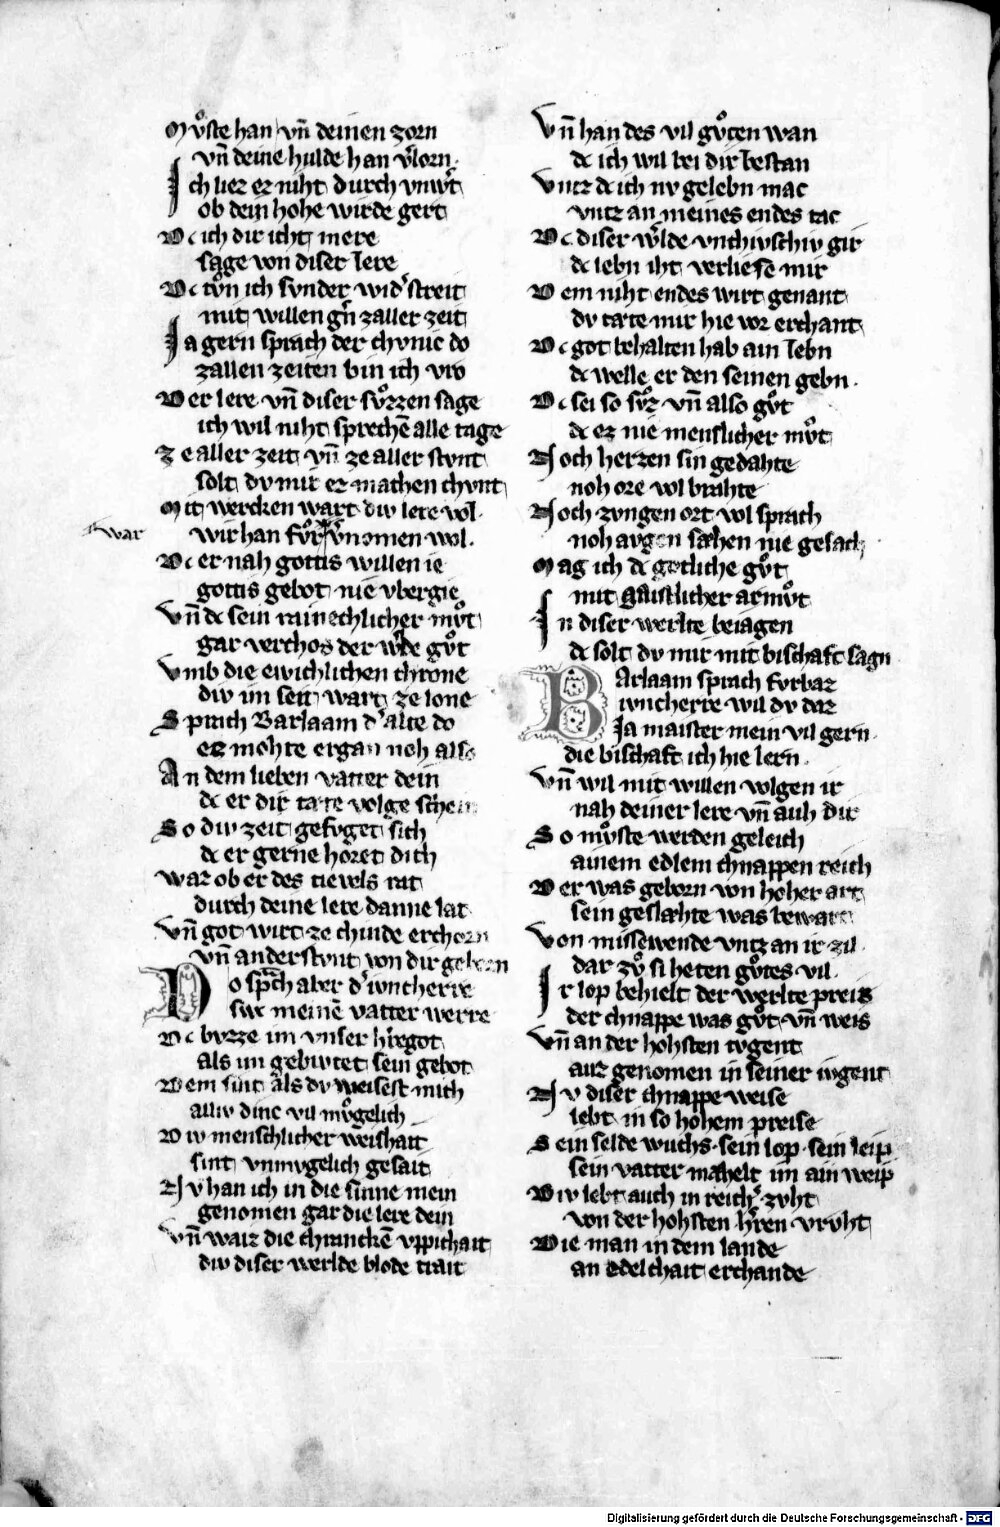 Mv̊ste han vn̄ deinen zorn
vn̄ deine hulde han v̓lorn.
Ich liez ez niht durch vnw̓t
ob dein hohe wirde gert
Dc ich dir iht mere
sage von diser lere
Dc tv̊n ich svnder wid̓ streit
mit willen gn̄ zaller zeit
Ja gern sprach der chvnic do
zallen zeiten bin ich vro
Der lere vn̄ diser sv̊zzen sage
ich wil niht sprechē alle tage
Ze aller zeit vn̄ ze aller stvnt
solt dv mir ez machen chvnt
Mit wercken wart diw lere vol
war
wir han fv̊r v̓nomen wol.
Dc er nah gottis willen ie
gottis gebot nie vbergie
Vn̄ dc sein rainechlicher mv̊t
gar verchos der w̓lde gv̊t
Vmb die ewichlichen chrone
diw im seit wart ze lone
Sprach Barlaam d̓ alte do
ez mohte ergan noh also
An dem lieben vatter dein
dc er dir tæte volge schein
So diw zeit gefvget sich
dc er gerne horet dich
War ob er des tievels rat
durch deine lere danne lat
Vn̄ got wirt ze chinde erchorn
vn̄ anderstvnt von dir geborn
Do sprach aber d̓ ivncherre
swc meinē vatter werre
Dc bvzze im vnser h̓regot
als im gebivtet sein gebot
Dem sint als dv weisest mich
alliv dinc vil mv̊gelich
Div menschlicher weishait
sint vnmvgelich gesait
Nv han ich in die sinne mein
genomen gar die lere dein
Vn̄ waiz die chranckē vppichait
div diser werlde blode trait
Vn̄ han des vil gv̊ten wan
dc ich wil bei dir bestan
Vntz dc ich nv gelebn mac
vntz an meines endes tac
Dc diser w̓lde vnchivschiv gir
dc lebn iht verliese mir
Dem niht endes wirt genant
dv tæte mir hie vor erchant
Dc got behalten hab ain lebn
dc welle er den seinen gebn.
Dc sei so sv̊z vn̄ also gv̊t
dc ez nie menslicher mv̊t
Noch herzen sin gedahte
noh ore vol brahte
Noch zvngen ort vol sprach
noh avgen sæhen nie gesach
Mag ich dc gotliche gv̊t
mit gaistlicher armv̊t
In diser werlte beiagen
dc solt dv mir mit bischaft sagn
Barlaam sprach fvrbaz
ivncherre wil dv daz
Ja maister mein vil gern
die bischaft ich hie lern.
Vn̄ wil mit willen volgen ir
nah deiner lere vn̄ auh dir
So mv̊ste werden geleich
ainem edlem chnappen reich
Der was geborn von hoher art
sein geslæhte was bewart
Von missewende vntz an ir zil
dar zv̊ si heten gv̊tes vil
Ir lop behielt der werlte preis
der chnappe was gv̊t vn̄ weis
Vn̄ an der hohsten tvgent
auz genomen in seiner ivgent
Nv diser chnappe weise
lebt in so hohem preise
Sein selde wuchs sein lop sein leip
sein vatter mahelt im ain weip
Div lebt auch in reich̓ zvht
von der hohsten h̓ren vrvht
Die man in dem lande
an edelchait erchande
Digitalisierung gefördert durch die Deutsche Forschungsgemeinschaft - DFG